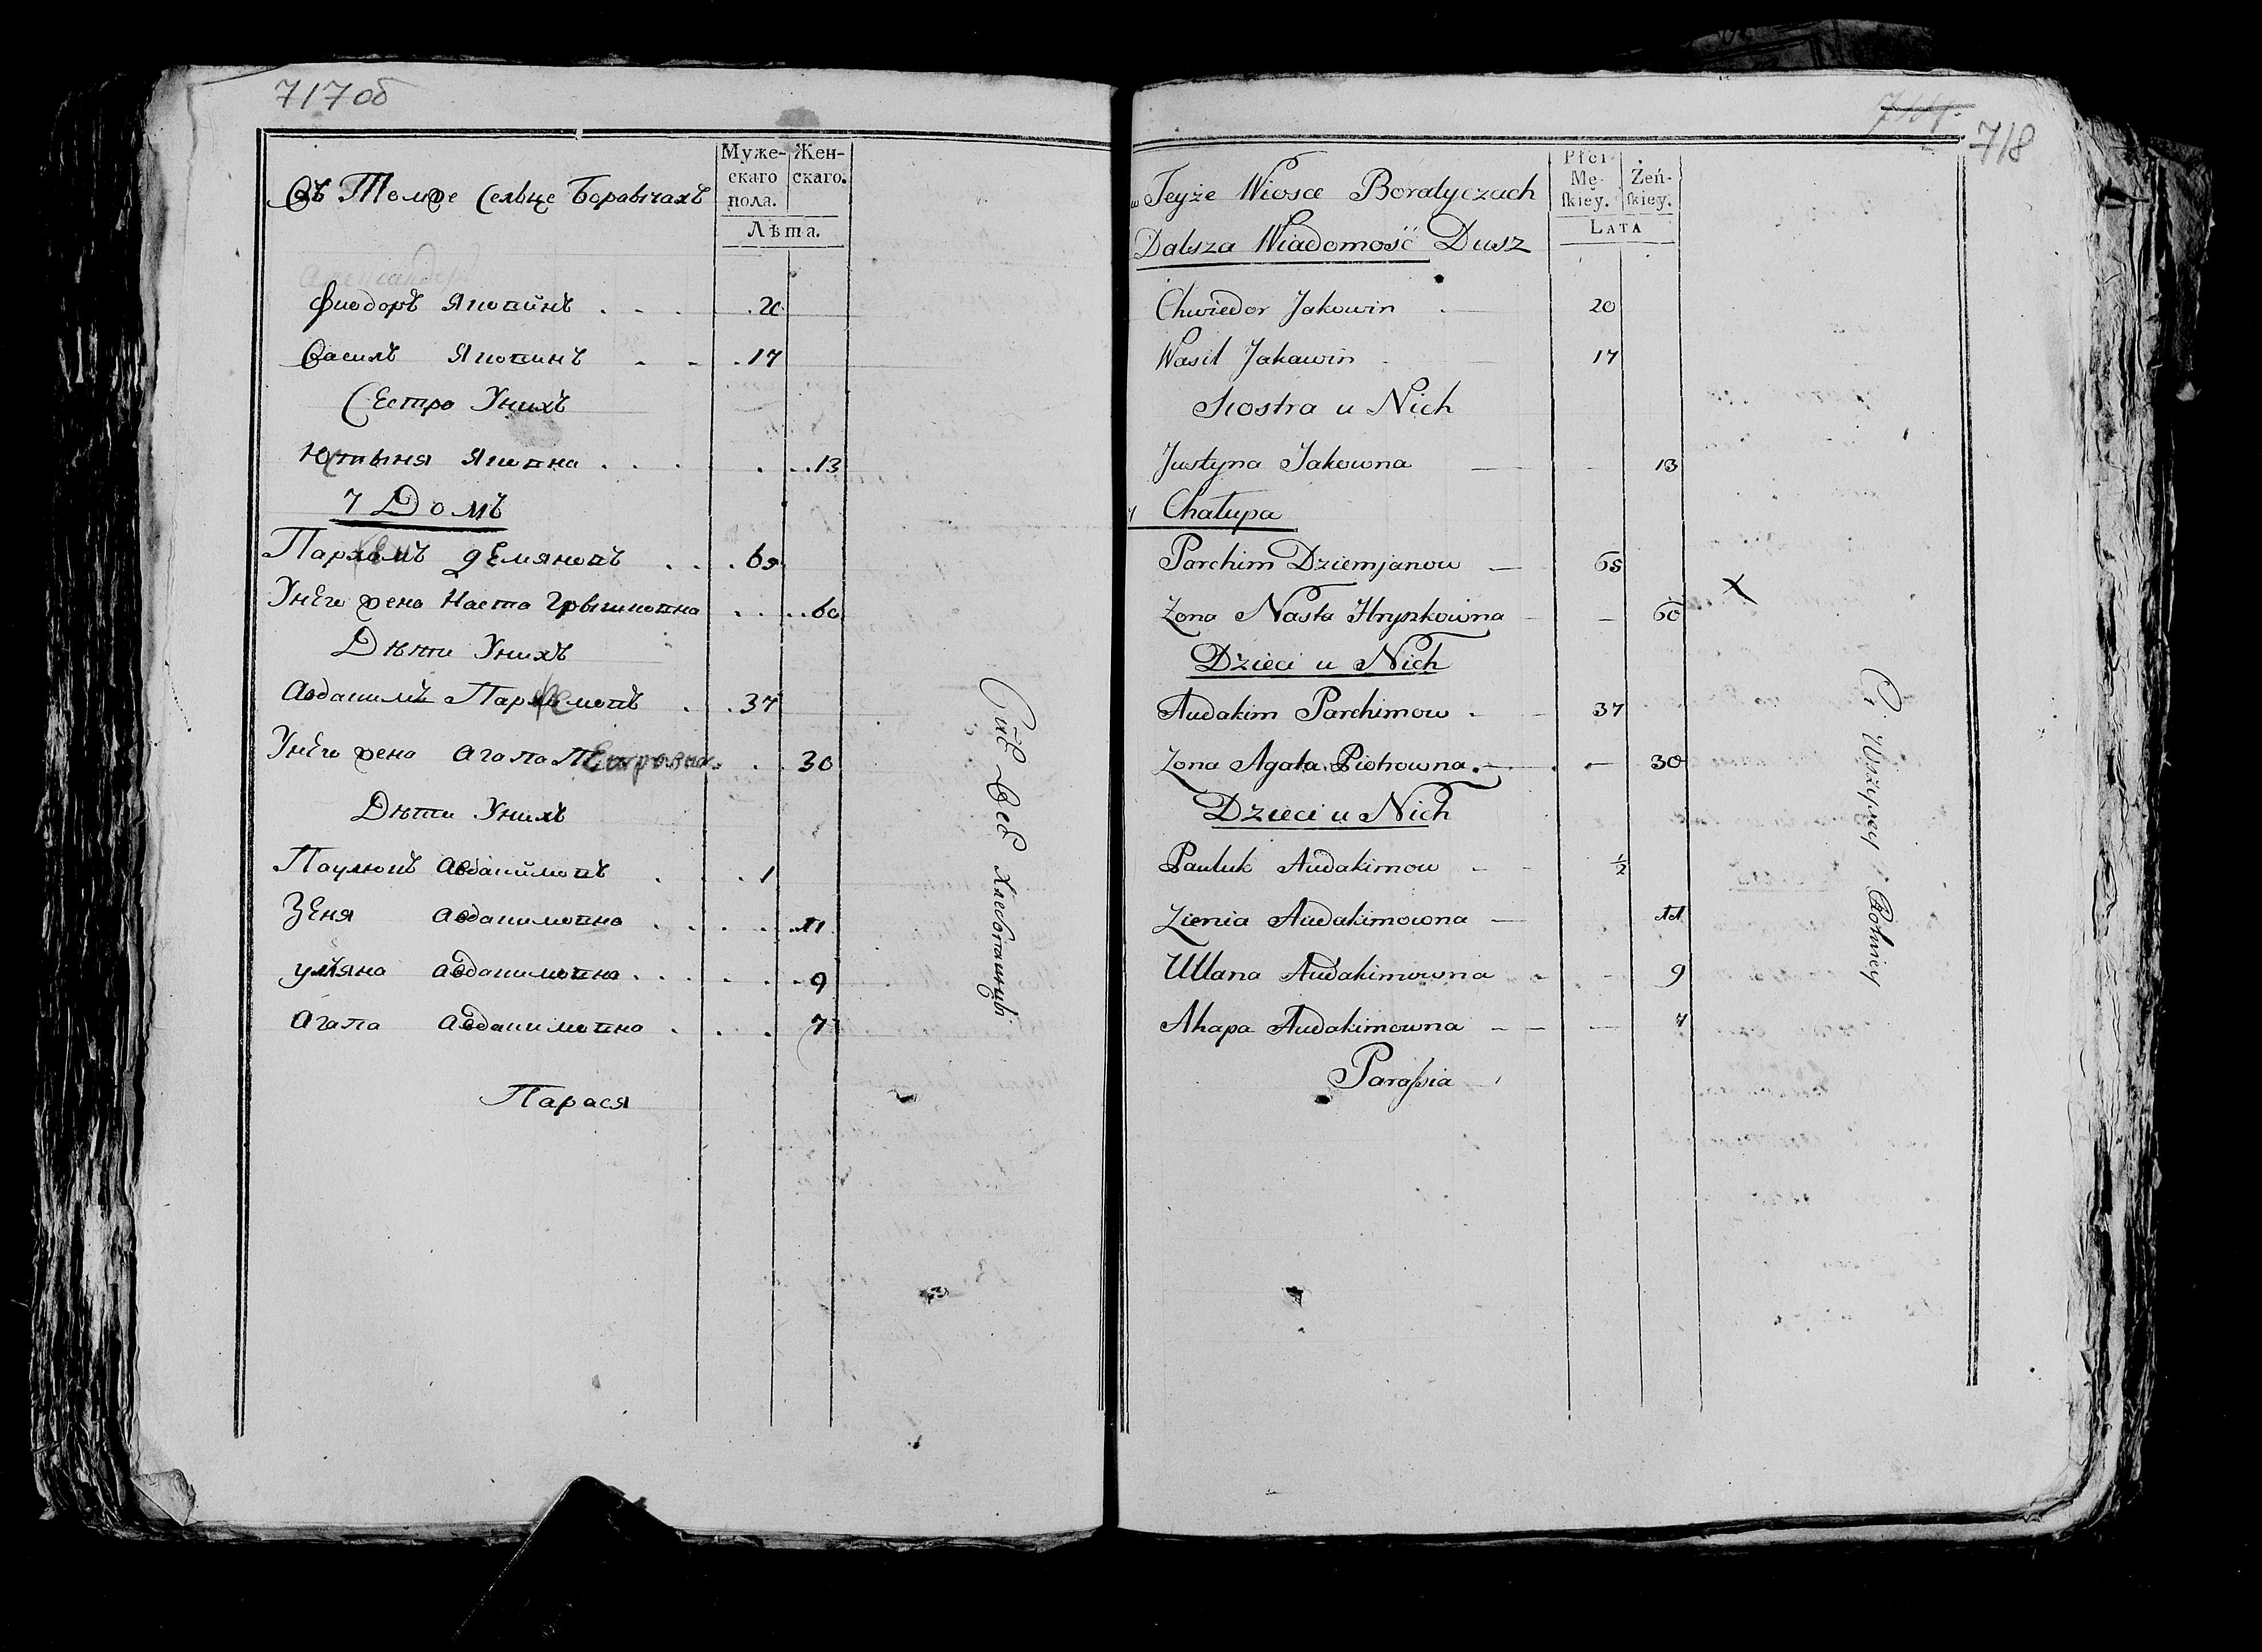 717об
Муже-
скаго
пола.
Жен-
скаго.
Лѣта.
Въ Томже Сельце Боратычахъ
Александръ
Фиодоръ Яковинъ . . . 20
Василь Яковинъ . . . 17
Сестра Унихъ
Юстыня Яковна . . . 13
7 Домъ
Пархимъ Демяновъ . . . 65
Унего жена Наста Грышковна . . . 60
Дѣти Унихъ
Авдакимъ Пархимовъ . . 37
Унего жена Агапа Петровна . . 30
Дѣти Унихъ
Паулюкъ Авдакимовъ . . . 1
Зеня Авдакимовна . . . 11
Ульяна Авдакимовна . . . 9
Агапа Авдакимовна . . . 7
Парася
Сии Все Хлебопашцы
718
Płci
Mę-
ſkiey.
Żeń-
ſkiey.
LATA
w Teyże Wiosce Boratyczach
Dalsza Wiadomość Dusz
Chwiedor Jakowin 20
Wasil Jakowin 17
Siostra u Nich
Justyna Jakowna 13
7 Chałupa
Parchim Dziemjanow 65
Żona Nasta Hrynkowna 60
Dzieci u Nich
Audakim Parchimow 37
Żona Agata Piotrowna 30
Dzieci u Nich
Pauluk Audakimow ½
Zienia Audakimowna 11
Ullana Audakimowna 9
Ahapa Audakimowna 7
Paraſsia
X
Ci Wszyscy Rolnicy